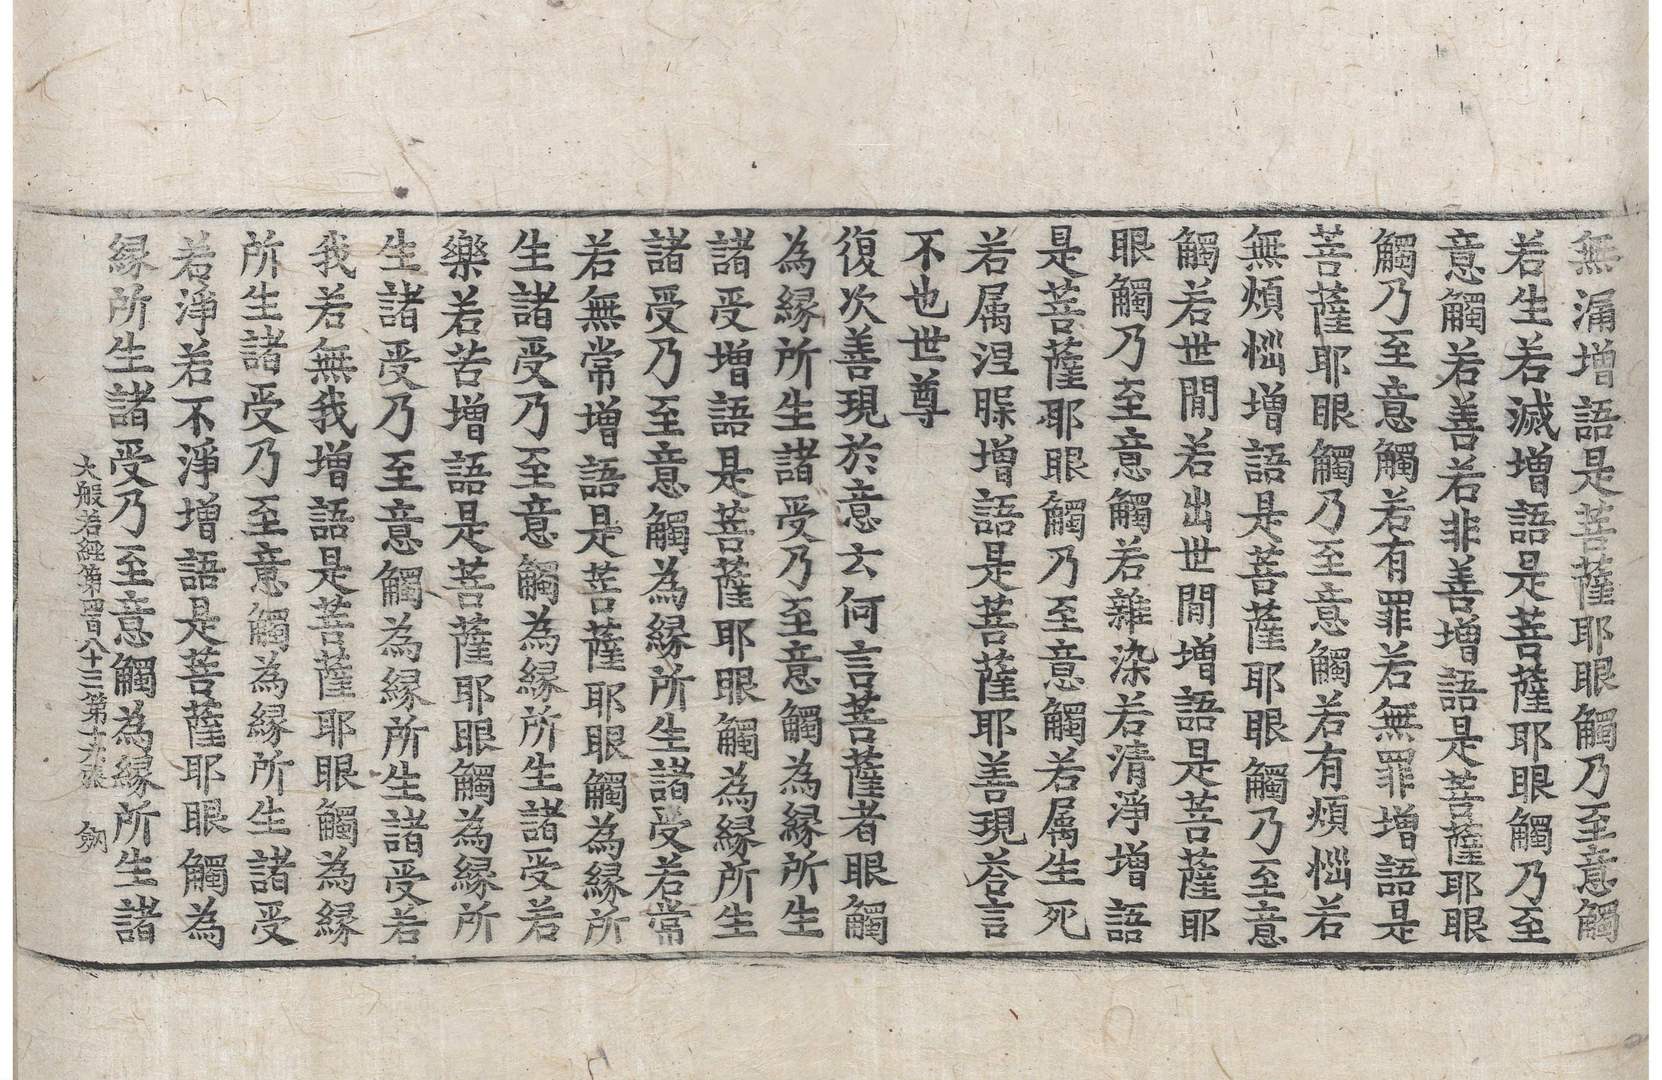 無漏增語是菩薩耶眼觸乃至意觸
若生若滅增語是菩薩耶眼觸乃至
意觸若善若非善增語是菩薩耶眼
觸乃至意觸若有罪若無罪增語是
菩薩耶眼觸乃至意觸若有煩惱若
無煩惱增語是菩薩耶眼觸乃至意
觸若世閒若出世閒增語是菩薩耶
眼觸乃至意觸若雜染若清淨增語
是菩薩耶眼觸乃至意觸若属生死
若属涅槃增語是菩薩耶善現荅言
不也世尊
復次善現於意云何言菩薩者眼觸
為縁所生諸受乃至意觸為縁所生
諸受增語是菩薩耶眼觸為縁所生
諸受乃至意觸為縁所生諸受若常
若無常增語是菩薩耶眼觸為縁所
生諸受乃至意觸為縁所生諸受若
樂若苦增語是菩薩耶眼觸為縁所
生諸受乃至意觸為縁所生諸受若
我若無我增語是菩薩耶眼觸為縁
所生諸受乃至意觸為縁所生諸受
若淨若不淨增語是菩薩耶眼觸為
縁所生諸受乃至意觸為縁所生諸
大般若經第四百八十三第十六張 劒